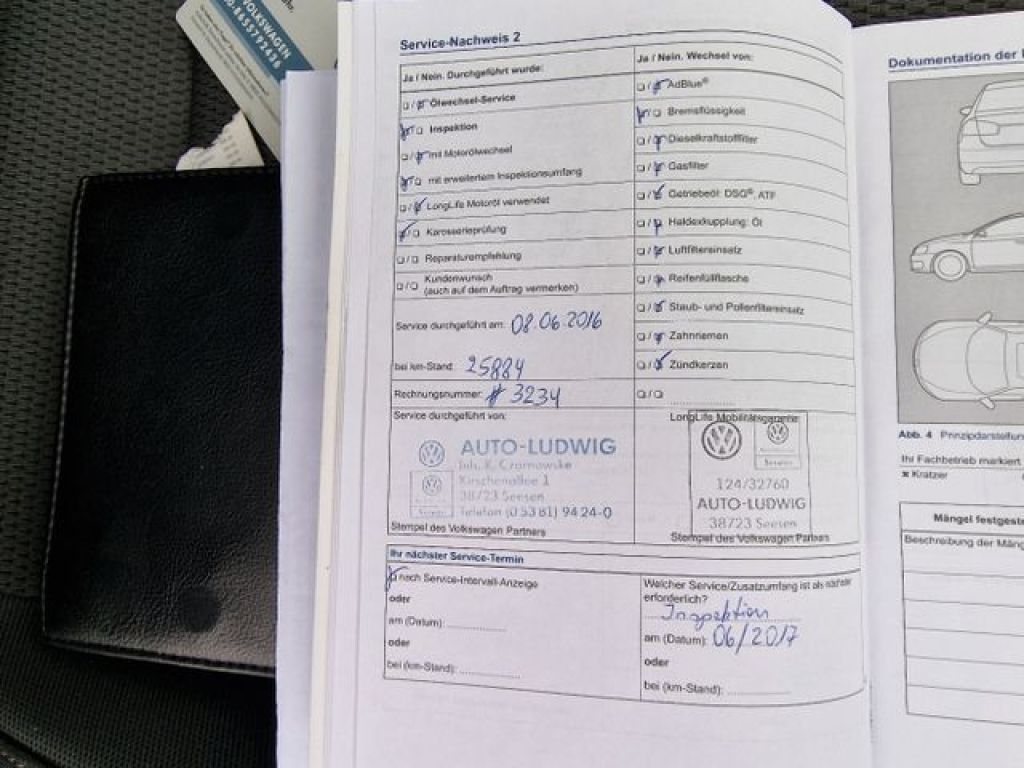 VOLKSWAGEN
Service-Nachweis 2
Ja / Nein. Durchgeführt wurde:
Ölwechsel-Service
Inspektion
mit Motorölwechsel
mit erweitertem Inspektionsumfang
LongLife Motoröl verwendet
Karosserieprüfung
Reparaturempfehlung
Kundenwunsch
(auch auf dem Auftrag vermerken)
Service durchgeführt am: 08.06.2016
bei km-Stand: 25884
Rechnungsnummer: # 3234
Service durchgeführt von:
AUTO-LUDWIG
Inh. K. Czarnowske
Kirschenallee 1
38723 Seesen
Telefon (0 53 81) 94 24-0
Stempel des Volkswagen Partners
Ja / Nein. Wechsel von:
AdBlue®
Bremsflüssigkeit
Dieselkraftstofffilter
Gasfilter
Getriebeöl: DSG®, ATF
Haldexkupplung: Öl
Luftfiltereinsatz
Reifenfüllflasche
Staub- und Pollenfiltereinsatz
Zahnriemen
Zündkerzen
LongLife Mobilitätsgarantie
Service
124/32760
AUTO-LUDWIG
38723 Seesen
Stempel des Volkswagen Partners
Ihr nächster Service-Termin
nach Service-Intervall-Anzeige
oder
am (Datum):
oder
bei (km-Stand):
Welcher Service/Zusatzumfang ist als nächster
erforderlich?
Inspektion
am (Datum): 06/2017
oder
bei (km-Stand):
Dokumentation der
Abb. 4 Prinzipdarstellun
Ihr Fachbetrieb markiert
Kratzer
Mängel festgeste
Beschreibung der Mäng